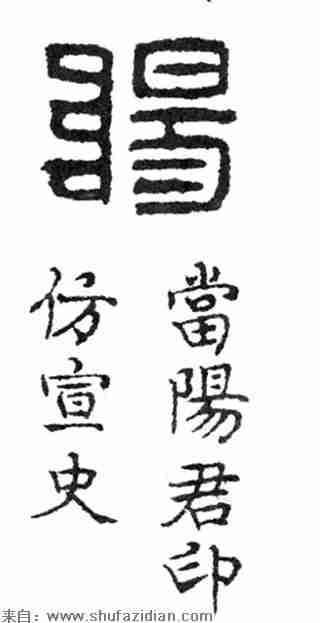 陽
當陽君印
仿宣史
来自：www.shufazidian.com